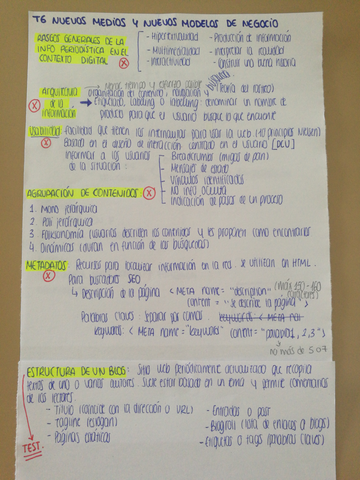 T6 NUEVOS MEDIOS Y NUEVOS MODELOS DE NEGOCIO
RASGOS GENERALES DE LA INFO PERIODÍSTICA EN EL CONTEXTO DIGITAL
- Hipertextualidad
- Multimedialidad
- Interactividad
- Producción de información
- Interpretar la realidad
- Construir una buena historia
Arquitectura de la información
organización del contenido, navegación y
Etiquetado, labeling o labelling: denominar un nombre de
producto para que el usuario busque lo que encuentre
Usabilidad facilidad que tienen los internautas para usar la web (10 principios Nielsen)
Basada en el diseño de interacción centrado en el usuario [DCU]
Informar a los usuarios de la situación:
- Breadcrumbs (migas de pan)
- Mensajes de estado
- Vínculos identificados
- No info oculta
- Indicación de pasos de un proceso
AGRUPACIÓN DE CONTENIDOS
1. Mono jerárquica
2. Poli jerárquica
3. Folksonomía (usuarios describen los contenidos y les proponen como encontrarlos
4. Dinámicas (varían en función de las búsquedas)
METADATOS Recursos para localizar información en la red. Se utilizan en HTML.
Para buscadores SEO
Descripción de la página < META name = "description" (máx 150-160 caracteres)
content = "se describe la página"
Palabras claves separar por comas
keywords < META name = "keywords" content = "palabra 1, 2, 3" >
no más de 5 o 7
ESTRUCTURA DE UN BLOG: Sitio web periódicamente actualizado que recopila
textos de uno o varios autores. Suele estar basado en un tema y permite comentarios
de los lectores
- Título (coincide con la dirección o URL)
- Tagline (eslogan)
- Páginas estáticas
- Entradas o post
- Blogroll (lista de enlaces a blogs)
- Etiquetas o tags (palabras claves)
TEST.